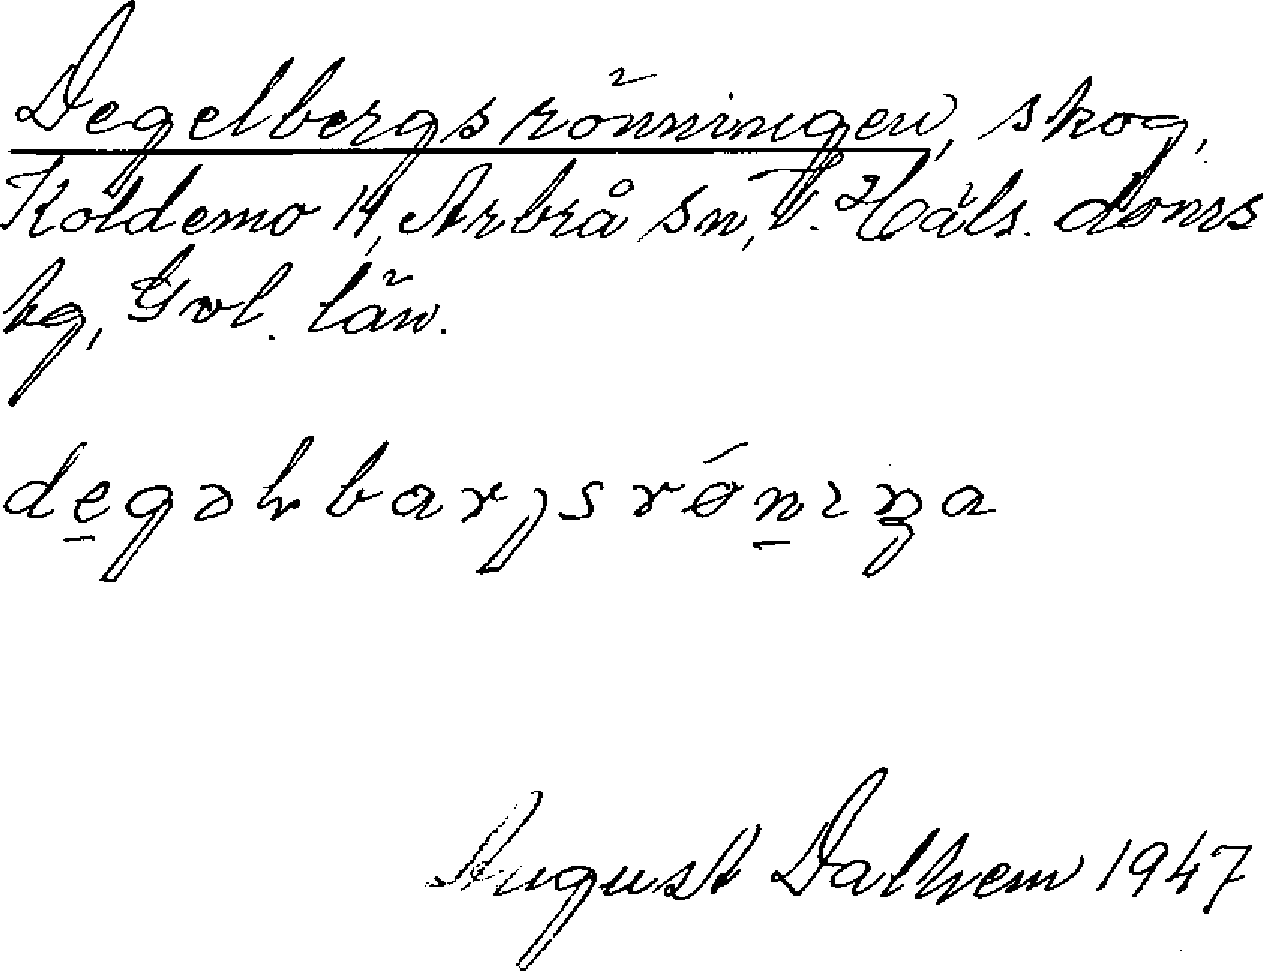 Degelbergsrönningen, skog,
Koldemo 14, Arbrå sn, V. Häls. doms
hg, Gvl. län.
degəlbarjsrǿnıŋa
August Dalhem 1947